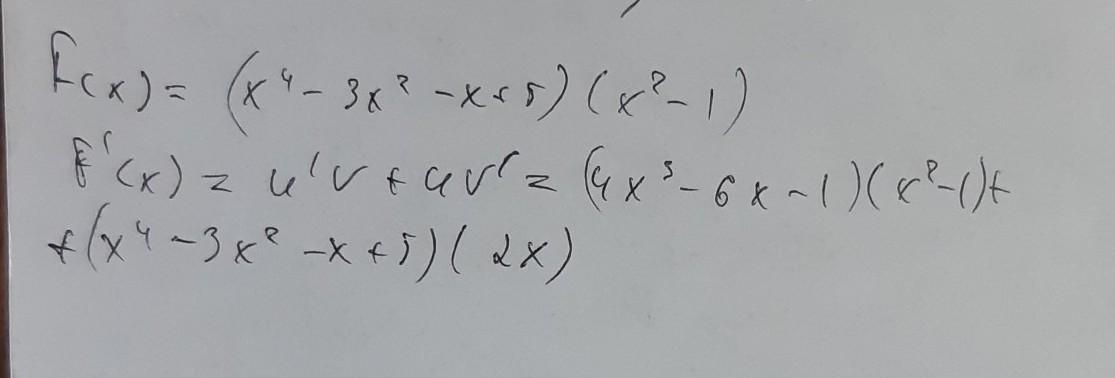 F(x) = (x⁴ - 3x² - x + 5) (x² - 1)
F'(x) = u'v + uv' = (4x³ - 6x - 1)(x² - 1) +
+ (x⁴ - 3x² - x + 5) (2x)